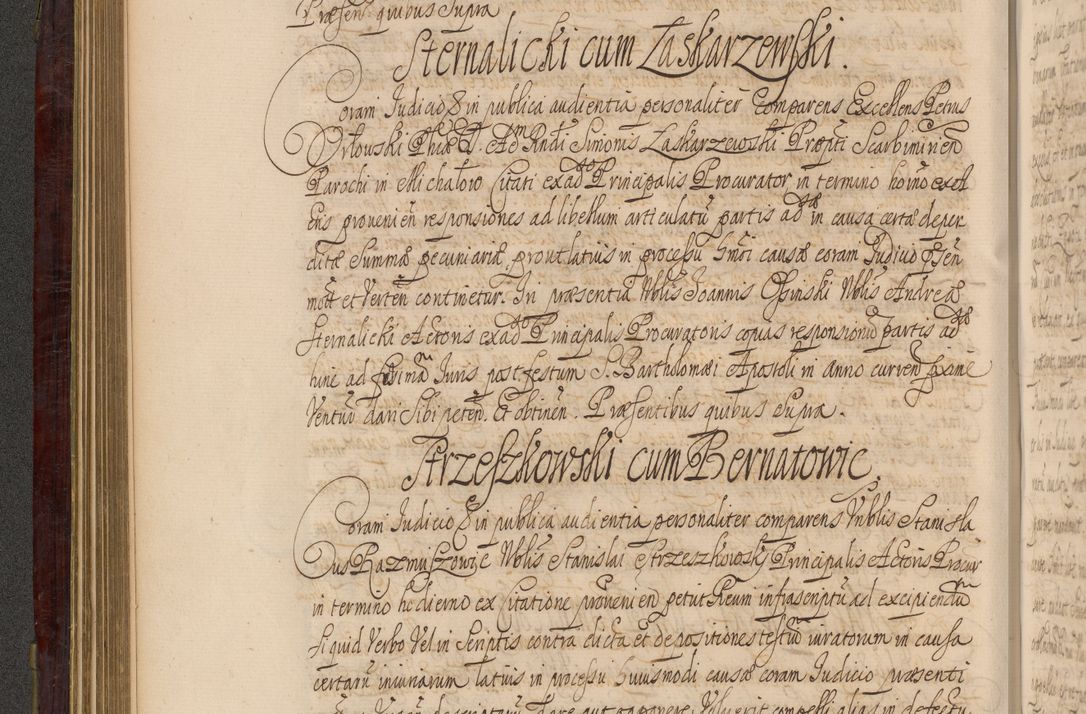 Præsen quibus supra
Sternalicki cum Laskarzewski.
Coram Judicio & in publica audientia personaliter Comparens Excellens Petrus
Orłowski Phiæ D. Adm Rndi Simonis Laskarzewski Præpti Scarbimirien
Parochi in Michałow Citati ex ado Principalis Procurator in termino hoino ex
ens provenien responsiones ad libellum articulatū partis adæ in causa certæ deper
ditæ Summæ pecuniariæ, prout latius in processu hmoi causæ coram Judicio
mott et Verten continetur. In præsentia Nblis Joannis Ossinski Nblis Andreæ
Sternalicki Actoris ex ado Principalis Procuratoris copias responsionū partis adæ
hinc ad primam Juris post festum S. Bartholomæi Apostoli in anno curren
Ventur dari Sibi peten. Et obtinen. Præsentibus quibus supra.
Strzeszkowski cum Bernatowic.
Coram Judicio & in publica audientia personaliter comparens Nblis Stanisla
us Razmuszowic Nblis Stanislai Strzeszkowski Principalis Actoris Procur
in termino hodierno ex Citatione provenien petut Reum infrascriptū ad excipiendū
Si quid Verbo Vel in Scriptis contra dicta et depositiones testiū iuratorum in causa
certarū iniuriarum latius in processu huiusmodi causæ coram Judicio præsenti
dare aut apponere. Voluerit compelli alias in defectu